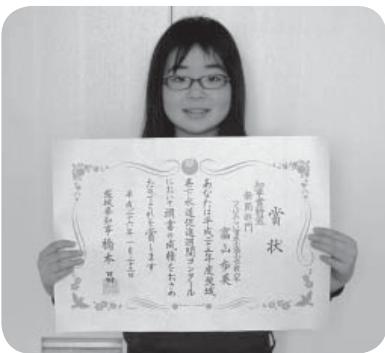 賞状
知事賞特選
新聞部門
富山歩美
あなたは平成二十五年度茨城
県下水道促進週間コンクール
において頭書の成績をおさめ
たのでこれを賞します
平成二十六年一月二十三日
茨城県知事 橋本昌